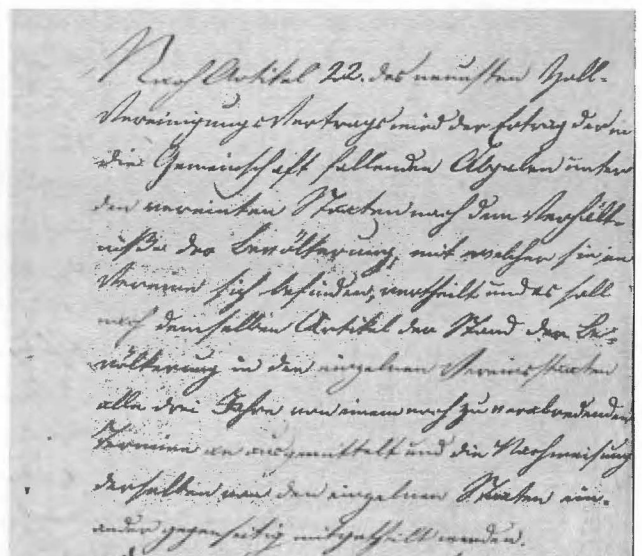 Nach Artikel 22. des neuesten Zoll-
Vereinigungs Vertrags wird der Ertrag der in
die Gemeinschaft fallenden Abgaben unter
den vereinten Staaten nach dem Verhält-
niße der Bevölkerung, mit welcher sie im
Vereine sich befinden, vertheilt und es soll
nach demselben Artikel der Stand der Be-
völkerung in den einzelnen Vereinsstaaten
alle drei Jahre von einem noch zu verabredenden
Termine an ausgemittelt und die Nachweisung
derselben von den einzelnen Staaten ein-
ander gegenseitig mitgetheilt werden.